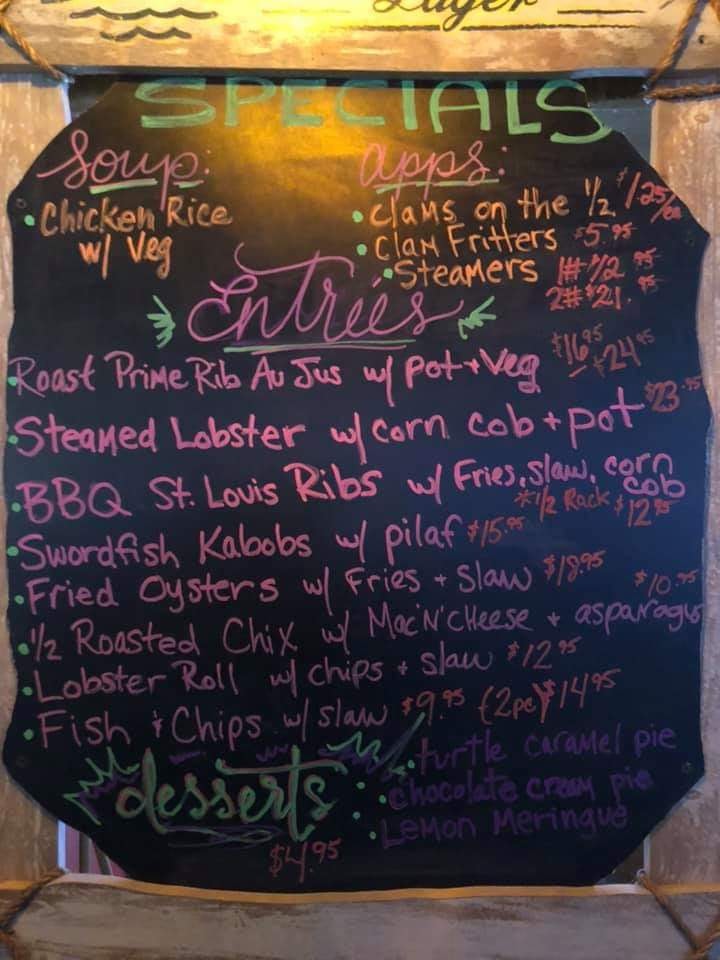 Lager
SPECIALS
Soup:
• Chicken Rice
w/ Veg
apps:
• Clams on the 1/2 $1.25/ea
• Clam Fritters $5.95
• Steamers 1# $12.95
2# $21.95
Entrées
• Roast Prime Rib Au Jus w/ Pot + Veg $16.95 $24.95
• Steamed Lobster w/ corn cob + pot $23.95
• BBQ St. Louis Ribs w/ Fries, slaw, corn cob
*1/2 Rack $12.95
• Swordfish Kabobs w/ pilaf $15.95
• Fried Oysters w/ Fries + Slaw $18.95
• 1/2 Roasted Chix w/ Mac'N'Cheese + asparagus $10.95
• Lobster Roll w/ chips + slaw $12.95
• Fish & Chips w/ slaw $9.95 (2pc) $14.95
desserts
$4.95
• turtle caramel pie
• chocolate cream pie
• Lemon Meringue